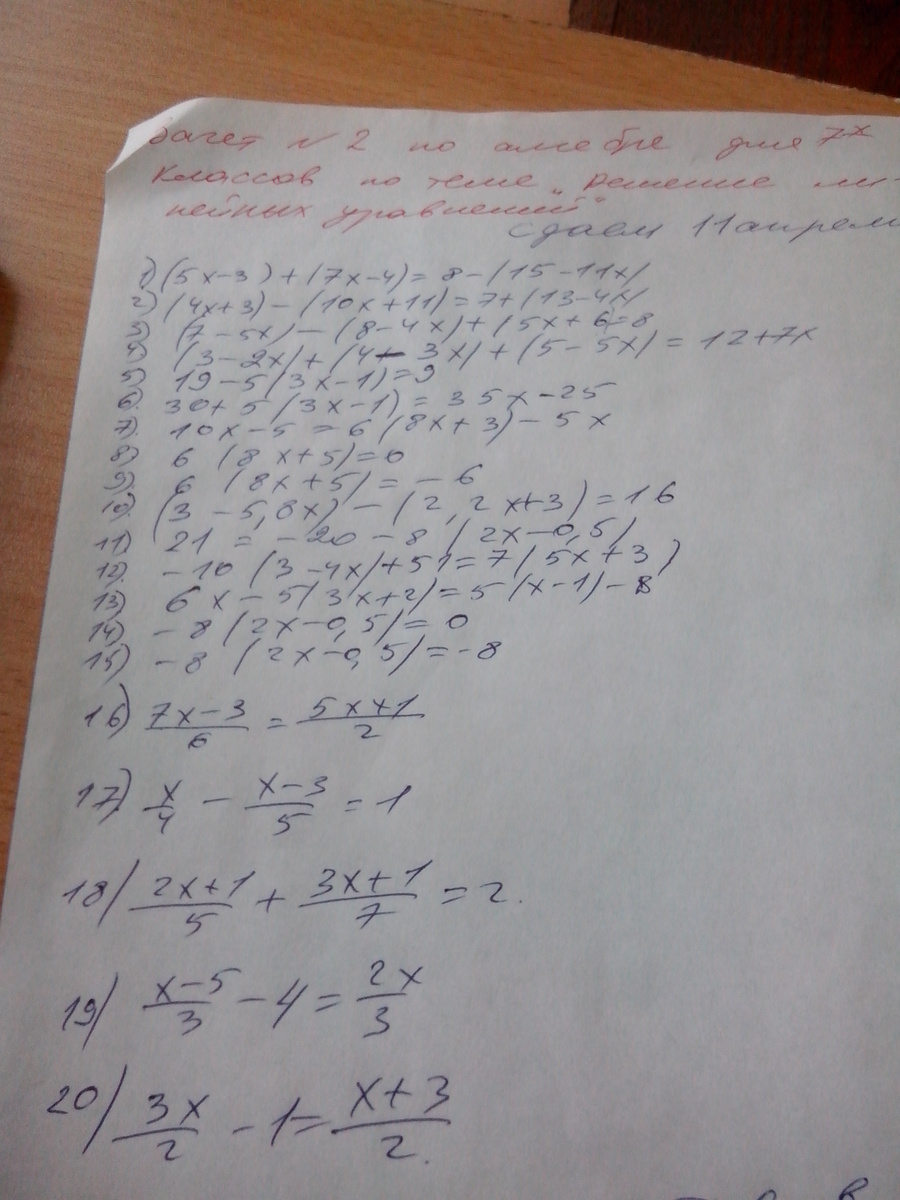 Зачет N2 по алгебре для 7х
классов по теме „Решение ли-
нейных уравнений"
сдаем 11 апреля
1) (5x-3)+(7x-4)=8-(15-11x)
2) (4x+3)-(10x+11)=7+(13-4x)
3) (7-5x)-(8-4x)+(5x+6)=8
4) (3-2x)+(4-3x)+(5-5x)=12+7x
5) 19-5(3x-1)=9
6) 30+5(3x-1)=35x-25
7) 10x-5=6(8x+3)-5x
8) 6(8x+5)=0
9) 6(8x+5)=-6
10) (3-5,8x)-(2,2x+3)=16
11) 21=-20-8(2x-0,5)
12) -10(3-4x)+51=7(5x+3)
13) 6x-5(3x+2)=5(x-1)-8
14) -8(2x-0,5)=0
15) -8(2x-0,5)=-8
16) (7x-3)/6=(5x+1)/2
17) x/4-(x-3)/5=1
18) (2x+1)/5+(3x+1)/7=2.
19) (x-5)/3-4=2x/3
20) 3x/2-1=(x+3)/2.